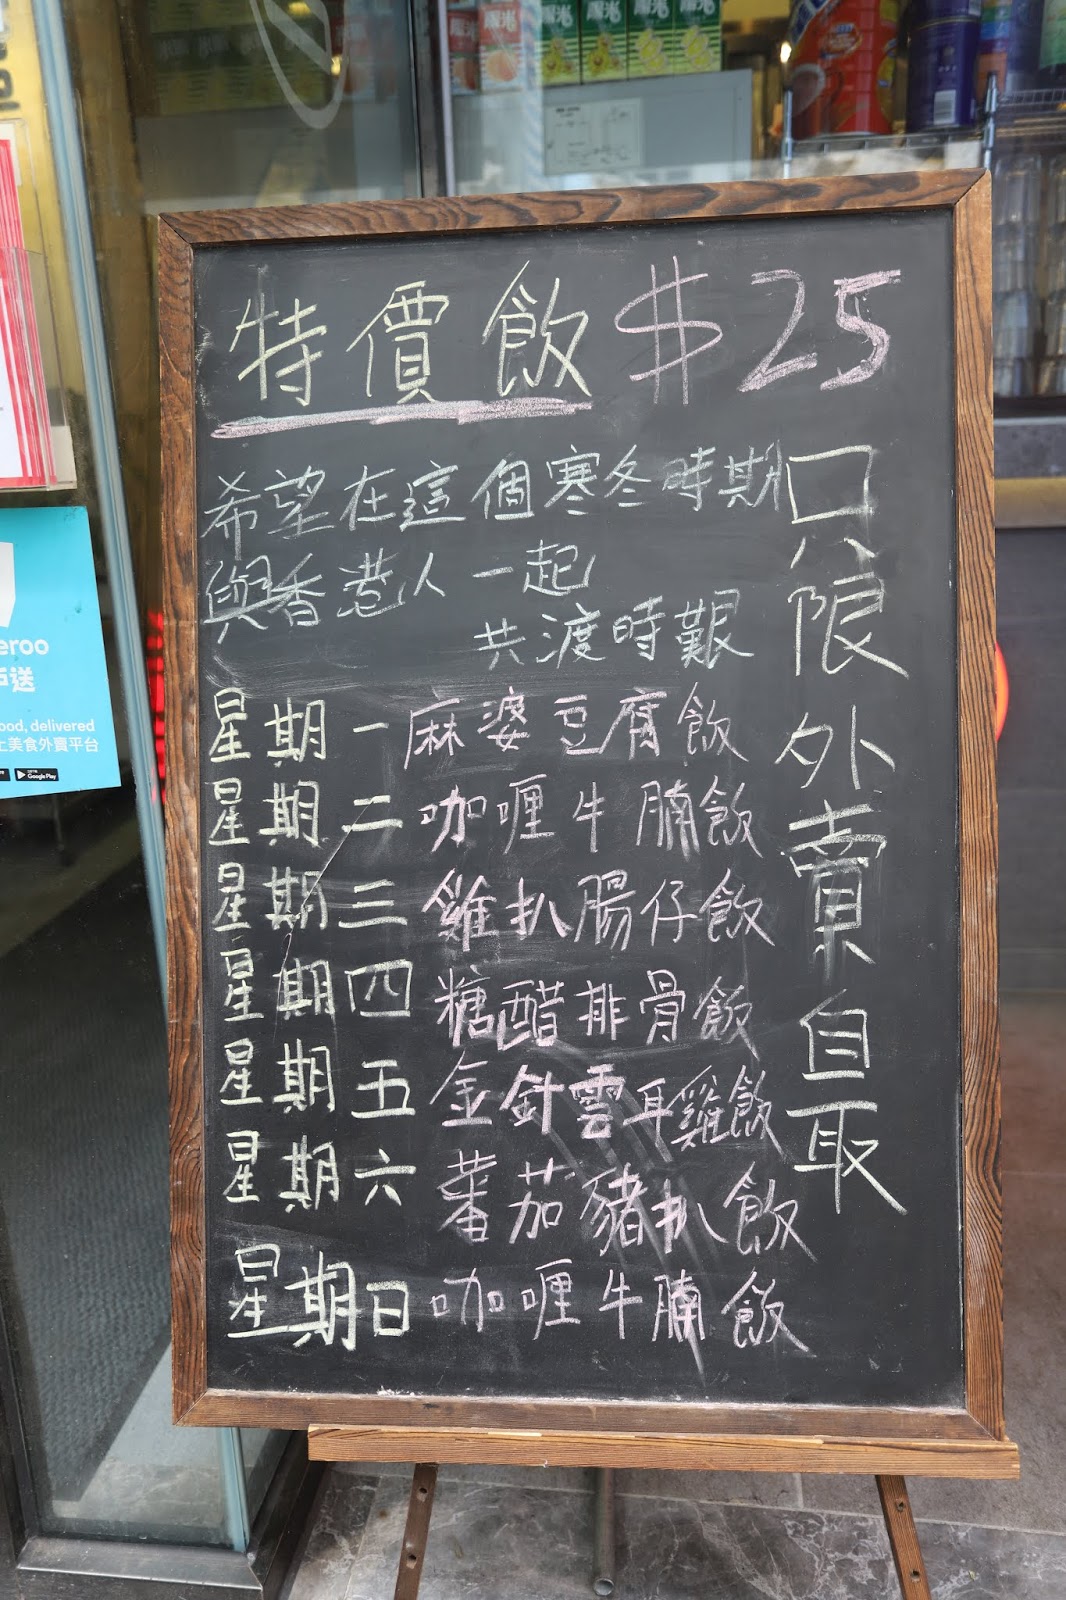 特價飯 $25
希望在這個寒冬時期
與香港人一起
共渡時艱
星期一麻婆豆腐飯
星期二咖喱牛腩飯
星期三雞扒腸仔飯
星期四糖醋排骨飯
星期五金針雲耳雞飯
星期六蕃茄豬扒飯
星期日咖喱牛腩飯
只限外賣自取
eroo
送
ood, delivered
上美食外賣平台
Google Play